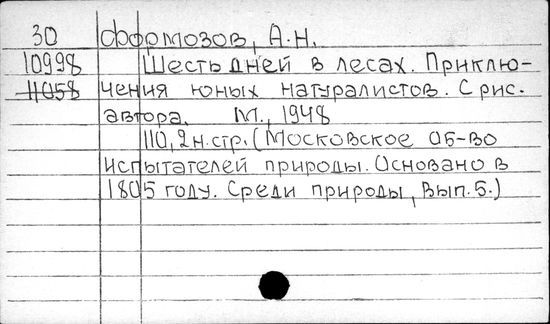 30 Формозов, А.Н.
10998 Шесть дней в лесах. Приклю-
11058 чения юных натуралистов. С рис.
автора. М., 1948
110, 2 н.стр. (Московское об-во
испытателей природы. Основано в
1805 году. Среди природы, вып. 5.)